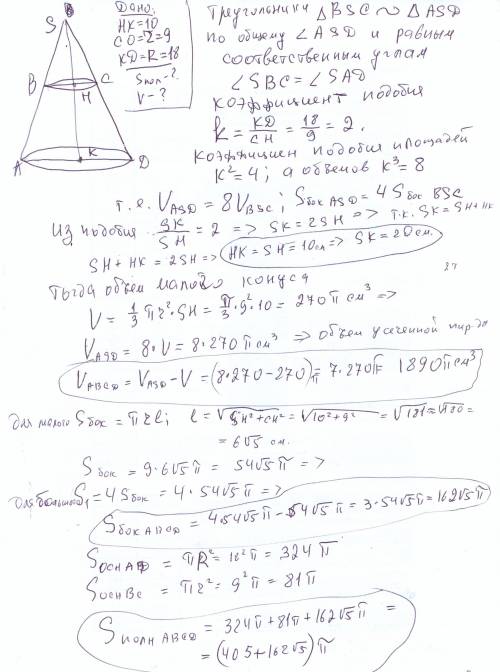 Дано:
HK=10
CO=r=9
KD=R=18
Sпол-?
V-?
S
B
C
H
A
K
D
Треугольники △BSC ∾ △ASD
по общему ∠ASD и равным
соответственным углам
∠SBC=∠SAD
коэффициент подобия
k = KD/CH = 18/9 = 2.
Коэффициен подобия площадей
K²=4; а объемов K³=8
т.е. V_ASD = 8V_BSC; Sбок ASD = 4 Sбок BSC
Из подобия SK/SH = 2 => SK = 2SH => т.к. SK=SH+HK
SH+HK = 2SH => HK=SH=10см => SK=20см.
Тогда объем малого конуса
V = 1/3 πr²·SH = π/3·9²·10 = 270π см³ =>
V_ASD = 8·V = 8·270π см³ => объем усеченной
V_ABCD = V_ASD - V = (8·270-270)π = 7·270π = 1890π см³
для малого Sбок = πrl; l = √SH²+CH² = √10²+9² = √181 ≈ √180 =
= 6√5 см.
Sбок = 9·6√5π = 54√5π =>
для большого S₁ = 4Sбок = 4·54√5π =>
Sбок ABCD = 4·54√5π - 54√5π = 3·54√5π = 162√5π
Sосн AD = πR² = 16²π = 324π
Sосн BC = πr² = 9²π = 81π
Sполн ABCD = 324π + 81π + 162√5π =
= (405+162√5)π